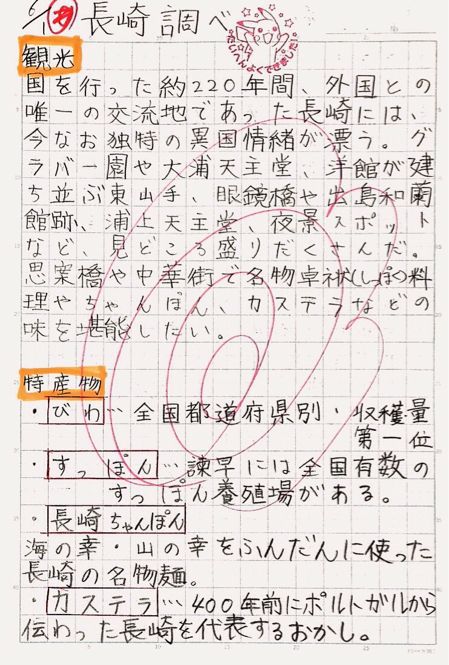 6/1 長崎調べ
たいへんよくできました
観光
国を行った約220年間、外国との
唯一の交流地であった長崎には、
今なお独特の異国情緒が漂う。グ
ラバー園や大浦天主堂、洋館が建
ち並ぶ東山手、眼鏡橋や出島和蘭
館跡、浦上天主堂、夜景スポット
など、見どころ盛りだくさんだ。
思案橋や中華街で名物卓袱(しっぽく)料
理やちゃんぽん、カステラなどの
味を堪能したい。
特産物
・びわ…全国都道府県別・収穫量
第一位
・すっぽん…諫早には全国有数の
すっぽん養殖場がある。
・長崎ちゃんぽん
海の幸・山の幸をふんだんに使った
長崎の名物麺。
・カステラ…400年前にポルトガルから
伝わった長崎を代表するおかし。